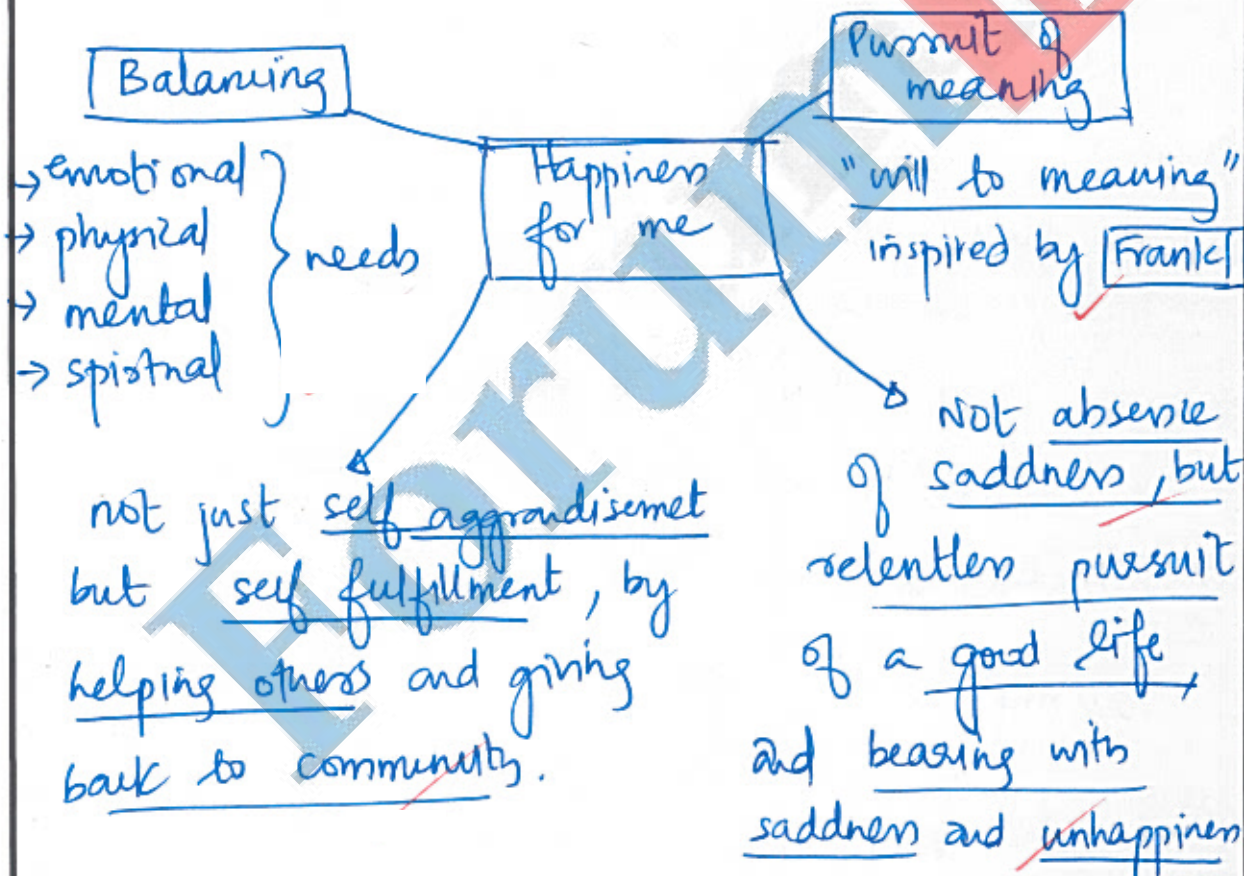 Balancing
→ emotional
→ physical
→ mental
→ spiritual
needs
Happiness
for me
Pursuit of
meaning
"will to meaning"
inspired by Frankl
not just self aggrandisemet
but self fulfillment, by
helping others and giving
back to community.
Not absence
of saddness, but
relentless pursuit
of a good life,
and bearing with
saddness and unhappiness
Forum